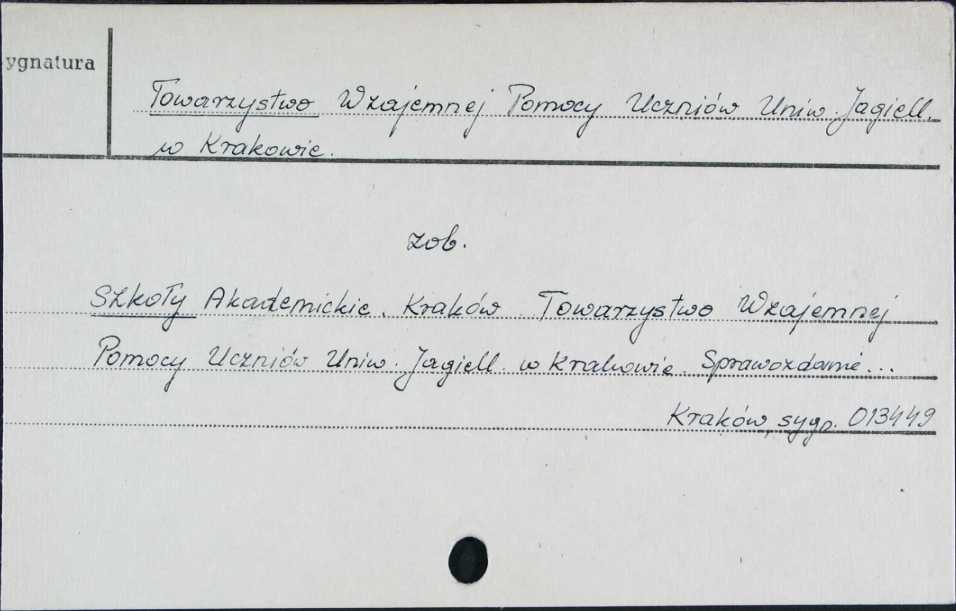 ygnatura
Towarzystwo Wzajemnej Pomocy Uczniów Uniw. Jagiell.
w Krakowie.
zob.
Szkoły Akademickie. Kraków. Towarzystwo Wzajemnej
Pomocy Uczniów Uniw. Jagiell. w Krakowie. Sprawozdanie...
Kraków, sygn. 013449